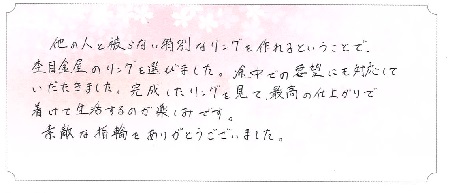 他の人と被らない特別なリングを作れるということで、
杢目金屋のリングを選びました。途中での要望にも対応して
いただきました。完成したリングを見て、最高の仕上がりで
着けて生活するのが楽しみです。
素敵な指輪をありがとうございました。